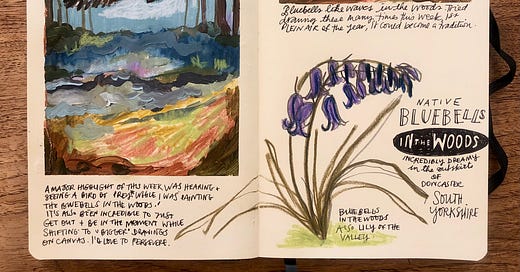 A MAJOR HIGHLIGHT OF THIS WEEK WAS HEARING +
SEEING A BIRD OF PREY WHILE I WAS PAINTING
THE BLUEBELLS IN THE WOODS.
IT'S ALSO BEEN INCREDIBLE TO JUST
GET OUT + BE IN THE MOMENT WHILE
SHIFTING TO "BIGGER" DRAWINGS
ON CANVAS. I'D LOVE TO PERSEVERE.
Bluebells like waves in the woods. Tried
drawing these many times this week, 1st
PLEIN AIR OF THE YEAR, IT COULD BECOME A TRADITION
NATIVE
BLUEBELLS
IN THE WOODS
INCREDIBLY DREAMY
in the outskirts
OF
DONCASTER
SOUTH
YORKSHIRE
BLUEBELLS
IN THE WOODS
ALSO LILY OF THE
VALLEY.